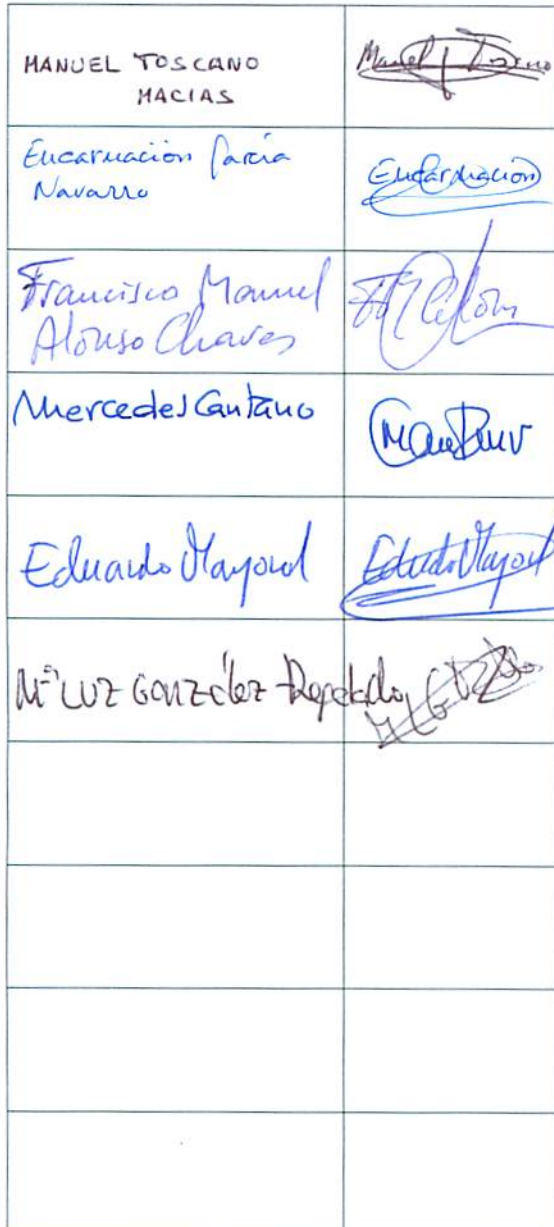 MANUEL TOSCANO
MACIAS
Manuel Toscano
Encarnación García
Navarro
Encarnación
Francisco Manuel
Alonso Chaves
Mercedes Cantano
Eduardo Mayoral
Eduardo Mayoral
Mª LUZ González